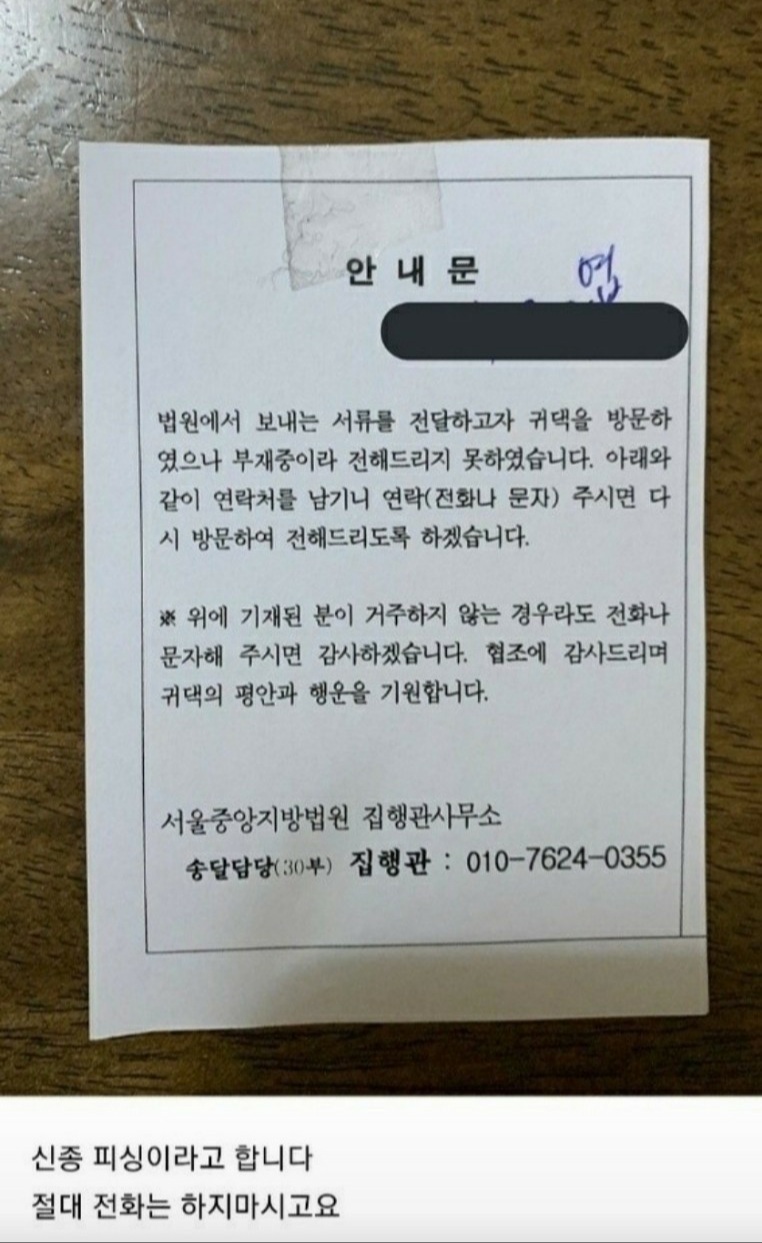 안내문
업
법원에서 보내는 서류를 전달하고자 귀댁을 방문하
였으나 부재중이라 전해드리지 못하였습니다. 아래와
같이 연락처를 남기니 연락(전화나 문자) 주시면 다
시 방문하여 전해드리도록 하겠습니다.
※ 위에 기재된 분이 거주하지 않는 경우라도 전화나
문자해 주시면 감사하겠습니다. 협조에 감사드리며
귀댁의 평안과 행운을 기원합니다.
서울중앙지방법원 집행관사무소
송달담당(30부) 집행관 : 010-7624-0355
신종 피싱이라고 합니다
절대 전화는 하지마시고요